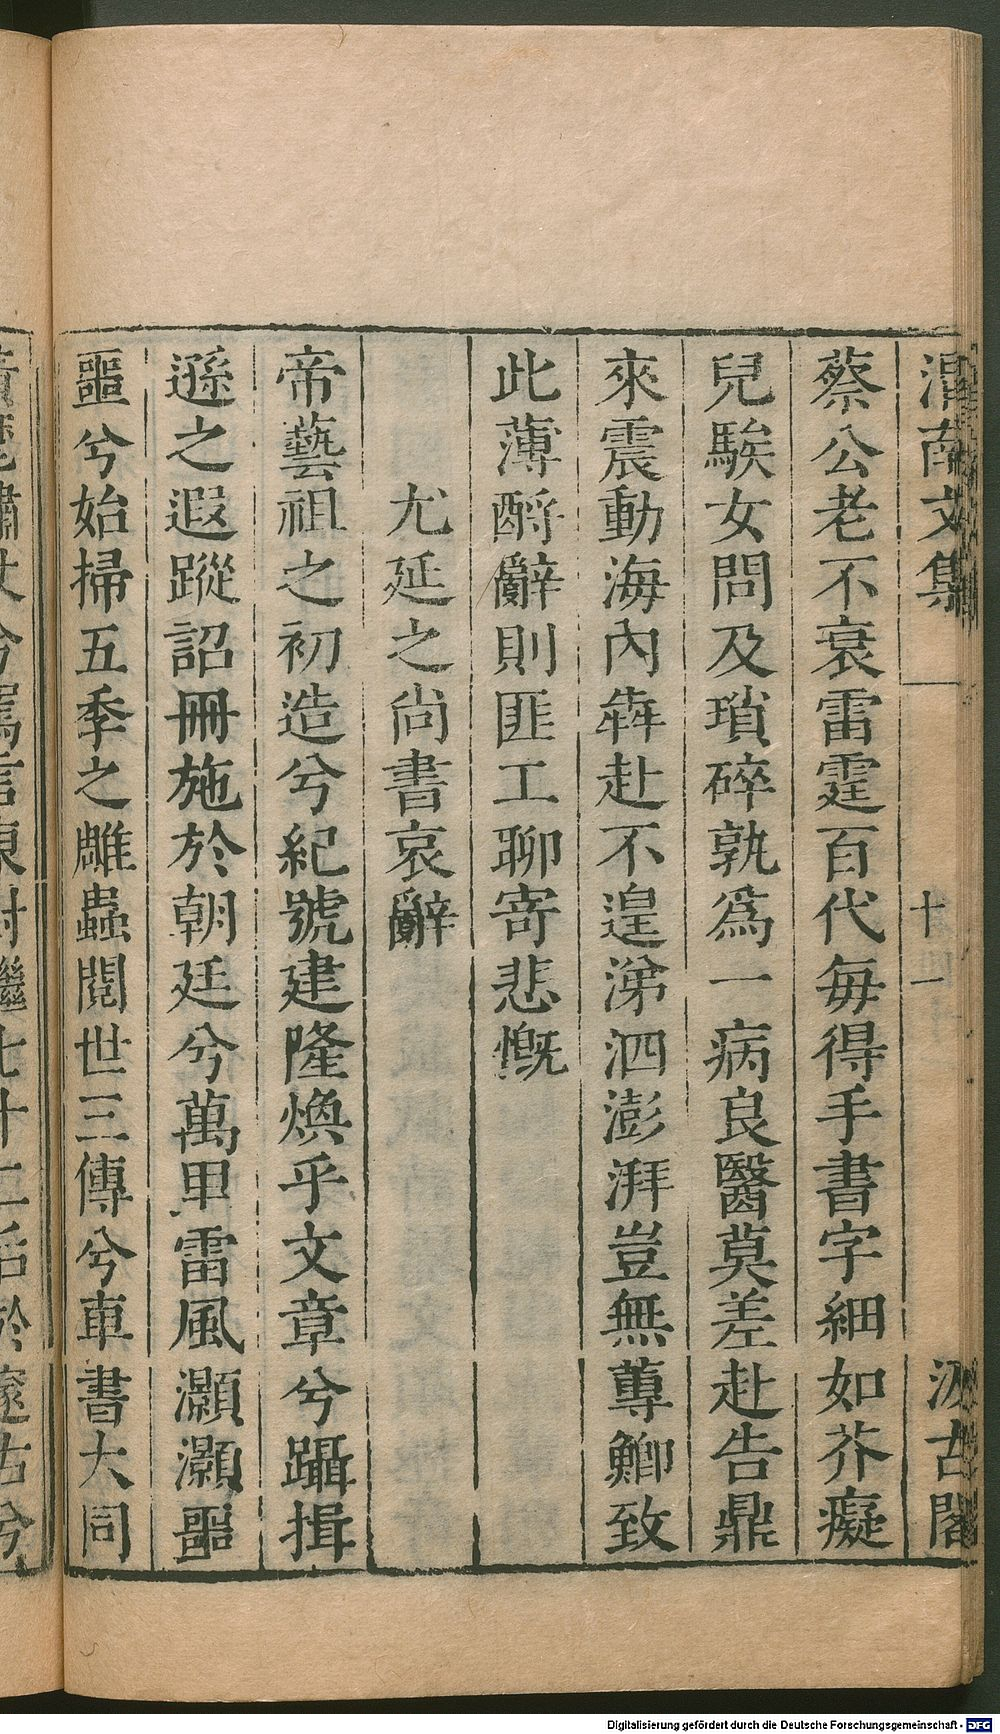 渭南文集 十一 汲古閣
蔡公老不衰雷霆百代每得手書字細如芥癡
兒騃女問及瑣碎孰爲一病良醫莫差赴告鼎
來震動海內犇赴不遑涕泗澎湃豈無蓴鯽致
此薄酹辭則匪工聊寄悲慨
尤延之尚書哀辭
帝藝祖之初造兮紀號建隆煥乎文章兮躡揖
遜之遐蹤詔冊施於朝廷兮萬里雷風灝灝噩
噩兮始掃五季之雕蟲閱世三傳兮車書大同
Digitalisierung gefördert durch die Deutsche Forschungsgemeinschaft - DFG